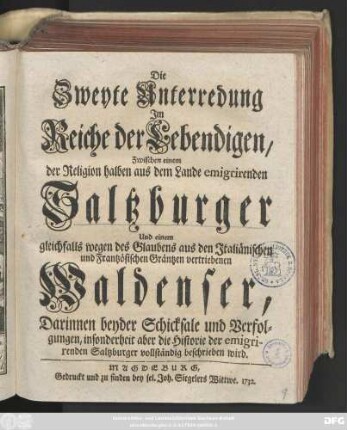 Die
Zweyte Unterredung
Im
Reiche der Lebendigen,
Zwischen einem
der Religion halben aus dem Lande emigrirenden
Saltzburger
Und einem
gleichfalls wegen des Glaubens aus den Italiänischen
und Frantzösischen Gräntzen vertriebenen
Waldenser,
Darinnen beyder Schicksale und Verfol-
gungen, insonderheit aber die Historie der emigri-
renden Saltzburger vollständig beschrieben wird.
MAGDEBURG,
Gedruckt und zu finden bey sel. Joh. Siegelers Wittwe. 1732.